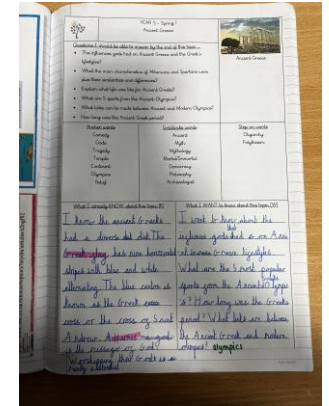 YEAR 5 - Spring 1
Ancient Greece
Questions I should be able to answer by the end of this topic...
The influences gods had on Ancient Greece and the Greek's
lifestyles?
What the main characteristics of Athenians and Spartans were
plus their similarities and differences?
Explain what life was like for Ancient Greeks?
What are 5 sports from the Ancient Olympics?
What links can be made between Ancient and Modern Olympics?
How long was the Ancient Greek period?
Ancient Greece
Rocket words
Comedy
Gods
Tragedy
Temple
Continent
Olympics
Belief
Goldilocks words
Ancient
Myth
Mythology
Mortal/Immortal
Democracy
Philosophy
Archaeologist
Step on words
Oligarchy
Polytheism
What I already KNOW about this topic (K)
I know the ancient Greeks
had a diverse diet. The
Greek flag has nine horizontal
stripes with blue and white
alternating. The blue canton is
known as the Greek
cross or the cross of Saint
Andrew.
is the messenger of Gods
Worshipping their Greek is
What I WANT to know about this topic (W)
I want to know about the
influence gods had on Anci
ent Greece Greek lifestyles.
What are the 5 most popular
sports from the Ancient Olympic
s? How long was the Greek
period? What links are between
the Ancient Greek and modern
olympics? olympics